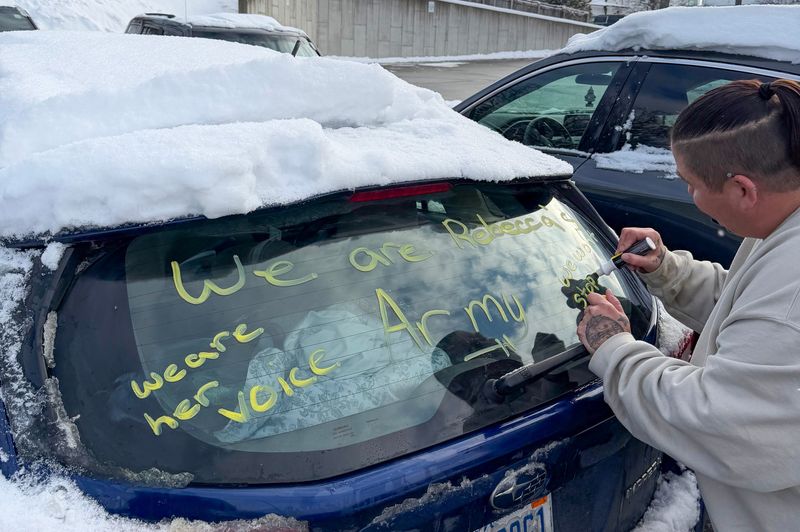 We are Rebecca's
Army
we are
her voice